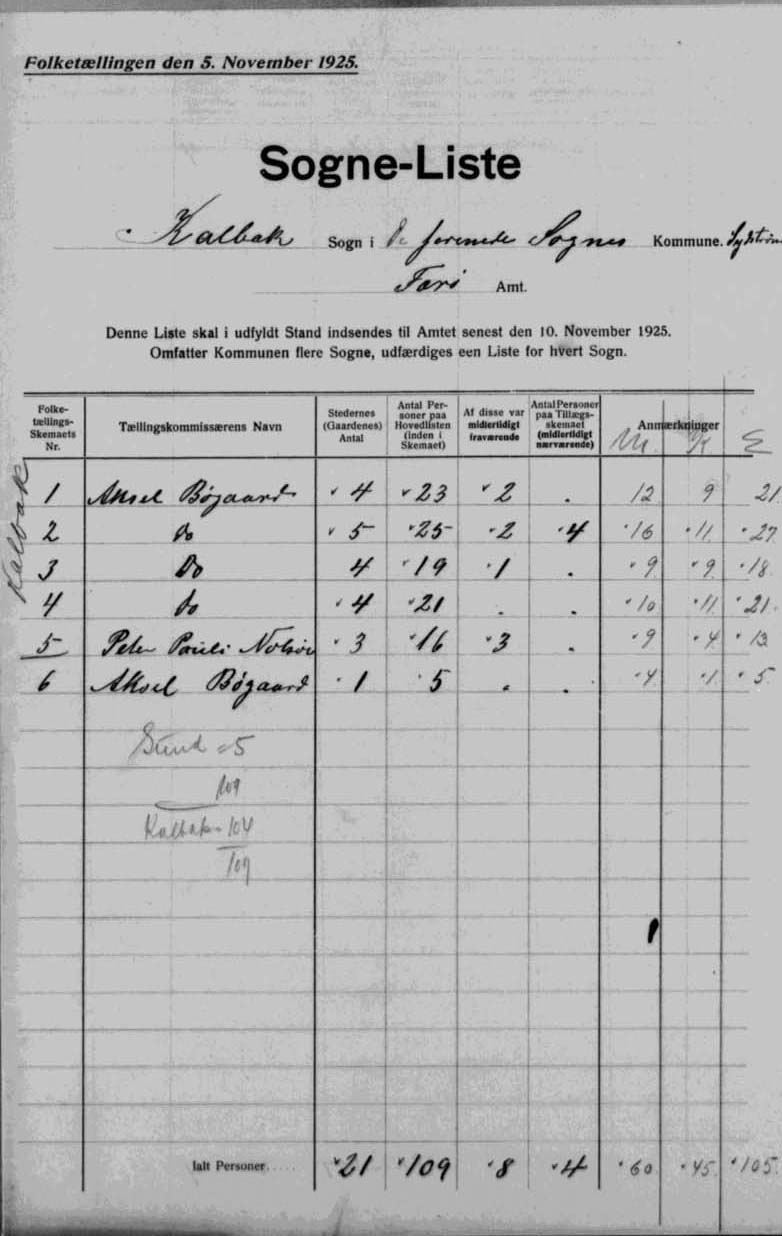 Folketællingen den 5. November 1925.
Sogne-Liste
Kalbak Sogn i De forenede Sognes Kommune. Sydstrøm
Færø Amt.
Denne Liste skal i udfyldt Stand indsendes til Amtet senest den 10. November 1925.
Omfatter Kommunen flere Sogne, udfærdiges een Liste for hvert Sogn.
Folketællings-Skemaets Nr. Tællingskommissærens Navn Stedernes (Gaardenes) Antal Antal Personer paa Hovedlisten (inden i Skemaet) Af disse var midlertidigt fraværende Antal Personer paa Tillægsskemaet (midlertidigt nærværende) Anmærkninger
M. K E
Kalbak
1 Aksel Bøgaard 4 23 2 . 12 9 21
2 do 5 25 2 4 16 11 27
3 Do 4 19 1 . 9 9 18
4 do 4 21 . . 10 11 21
5 Peter Pauli Nolsøe 3 16 3 . 9 4 13
6 Aksel Bøgaard 1 5 . . 4 1 5
Sund = 5
109
Kalbak = 104
109
Ialt Personer..... 21 109 8 4 60 45 105